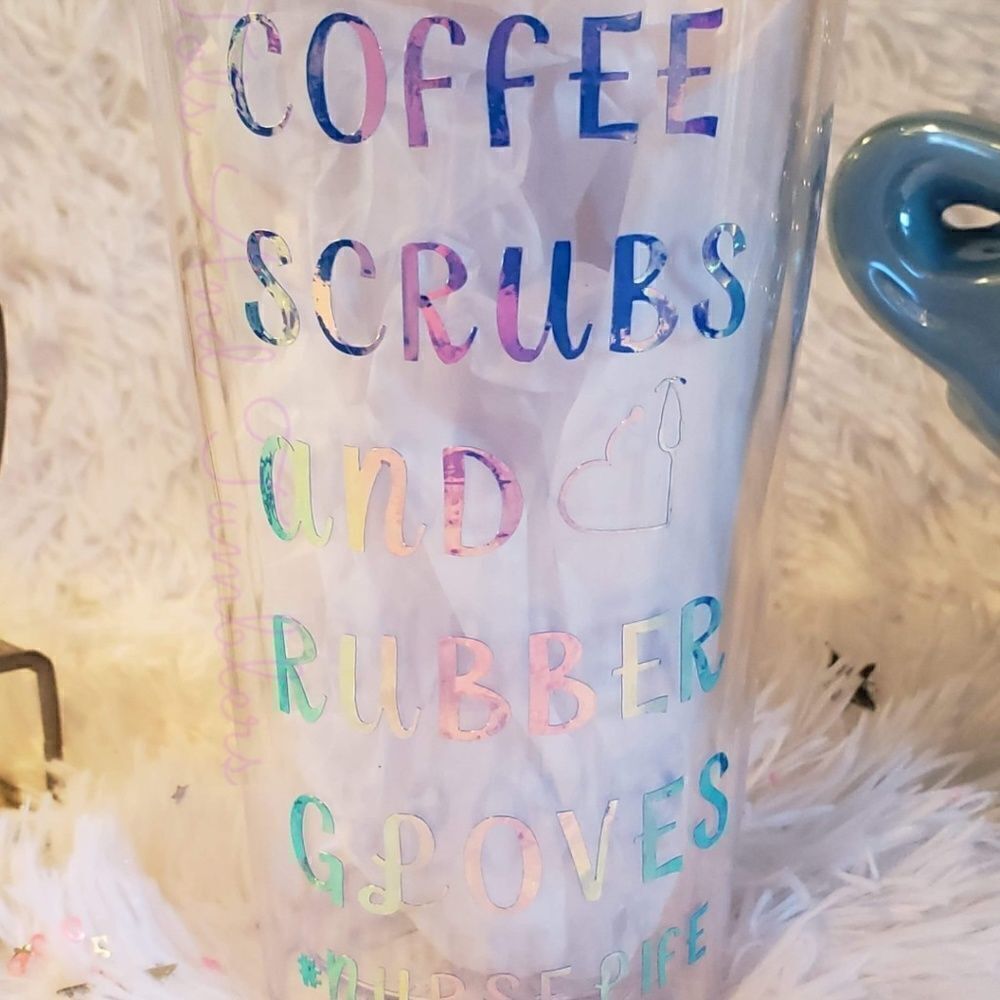 COFFEE
SCRUBS
anD
RUBBER
GLOVES
#NURSELIFE
And
Tumblers